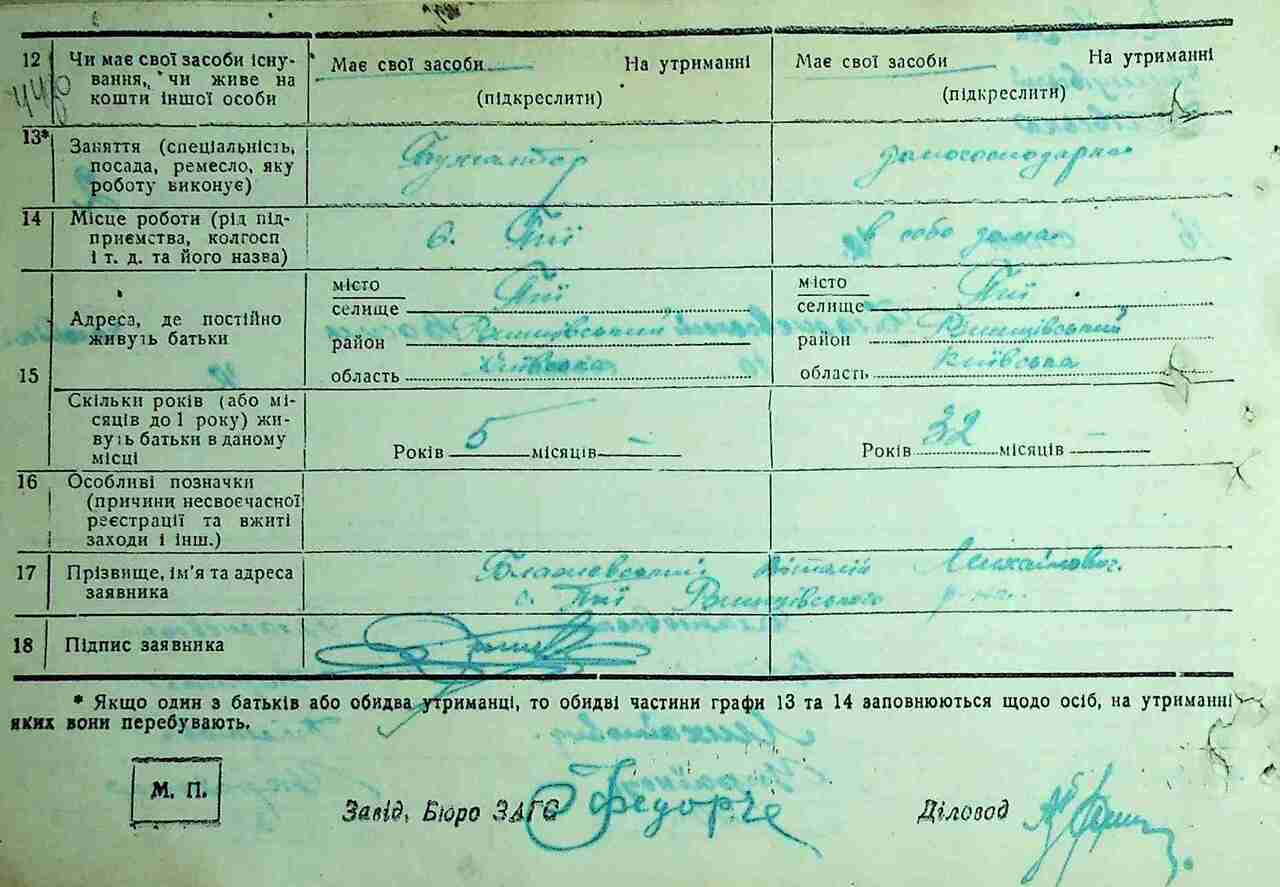 12 Чи має свої засоби існу-
вання, чи живе на
кошти іншої особи
Має свої засоби На утриманні
(підкреслити)
Має свої засоби На утриманні
(підкреслити)
13* Заняття (спеціальність,
посада, ремесло, яку
роботу виконує)
Бухгалтер
домогосподарка
14 Місце роботи (рід під-
приємства, колгосп
і т. д. та його назва)
с. Пії
в себе дома
15 Адреса, де постійно
живуть батьки
місто
селище Пії
район Ржищівський
область Київська
місто
селище Пії
район Ржищівський
область Київська
Скільки років (або мі-
сяців до 1 року) жи-
вуть батьки в даному
місці
Років 5 місяців –
Років 32 місяців –
16 Особливі позначки
(причини несвоєчасної
реєстрації та вжиті
заходи і інш.)
17 Прізвище, ім'я та адреса
заявника
Віталій Михайлович.
с. Пії Ржищівського р-на.
18 Підпис заявника
* Якщо один з батьків або обидва утриманці, то обидві частини графи 13 та 14 заповнюються щодо осіб, на утриманні
яких вони перебувають.
М. П.
Завід. Бюро ЗАГС
Діловод